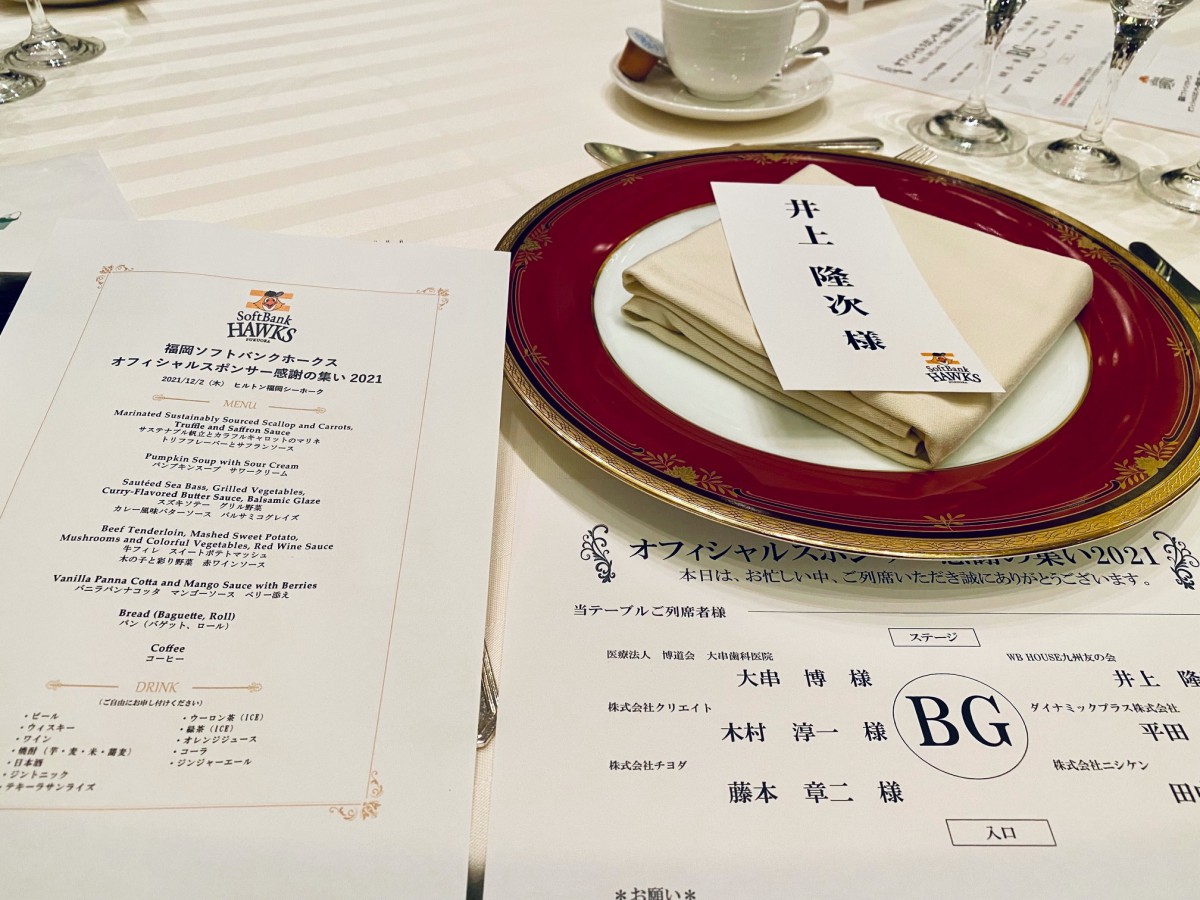 SoftBank
HAWKS
FUKUOKA
福岡ソフトバンクホークス
オフィシャルスポンサー感謝の集い 2021
2021/12/2（木） ヒルトン福岡シーホーク
MENU
Marinated Sustainably Sourced Scallop and Carrots,
Truffle and Saffron Sauce
サステナブル帆立とカラフルキャロットのマリネ
トリフフレーバーとサフランソース
Pumpkin Soup with Sour Cream
パンプキンスープ サワークリーム
Sautéed Sea Bass, Grilled Vegetables,
Curry-Flavored Butter Sauce, Balsamic Glaze
スズキソテー グリル野菜
カレー風味バターソース バルサミコグレイズ
Beef Tenderloin, Mashed Sweet Potato,
Mushrooms and Colorful Vegetables, Red Wine Sauce
牛フィレ スイートポテトマッシュ
木の子と彩り野菜 赤ワインソース
Vanilla Panna Cotta and Mango Sauce with Berries
バニラパンナコッタ マンゴーソース ベリー添え
Bread (Baguette, Roll)
パン（バゲット、ロール）
Coffee
コーヒー
DRINK
（ご自由にお申し付けください）
・ビール
・ウィスキー
・ワイン
・焼酎（芋・麦・米・蕎麦）
・日本酒
・ジントニック
・テキーラサンライズ
・ウーロン茶（ICE）
・緑茶（ICE）
・オレンジジュース
・コーラ
・ジンジャーエール
井上 隆次 様
SoftBank
HAWKS
FUKUOKA
オフィシャルスポン の集い2021
本日は、お忙しい中、ご列席いただき誠にありがとうございます。
当テーブルご列席者様
ステージ
医療法人 博道会 大串歯科医院
大串 博 様
株式会社クリエイト
木村 淳一 様
株式会社チヨダ
藤本 章二 様
BG
WB HOUSE九州友の会
井上 隆
ダイナミックプラス株式会社
平田
株式会社ニシケン
田中
入口
＊お願い＊